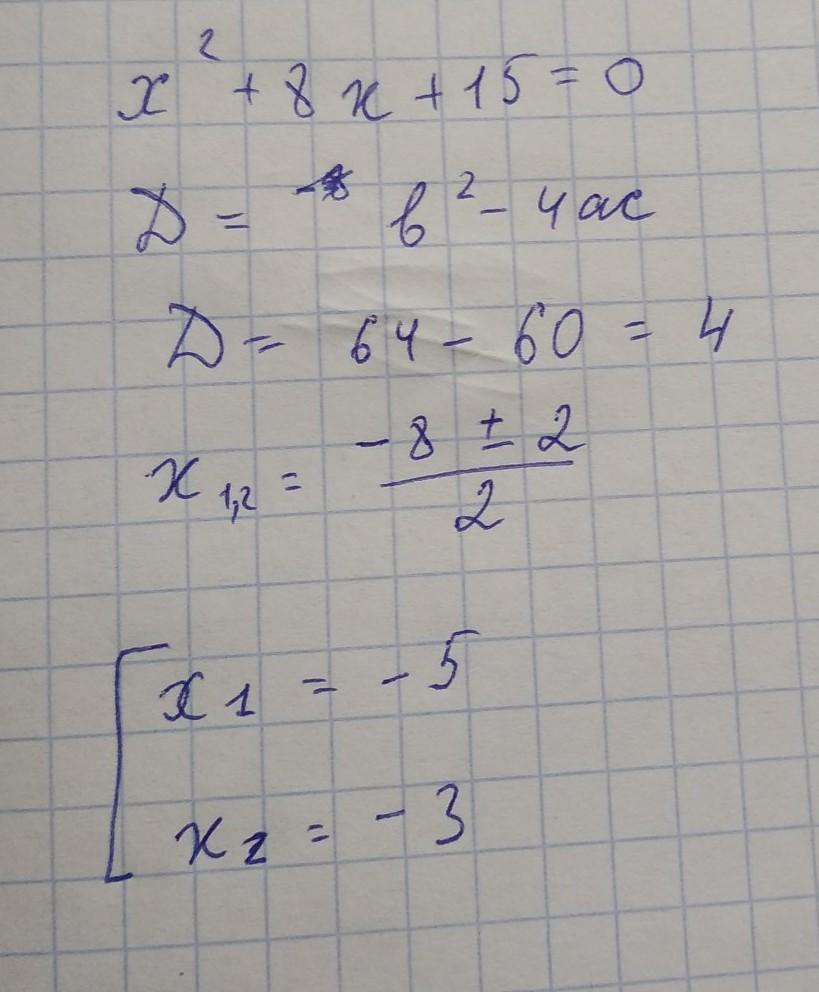 x² + 8x + 15 = 0
D = b² - 4ac
D = 64 - 60 = 4
x₁,₂ = (-8 ± 2) / 2
[ x1 = -5
x2 = -3